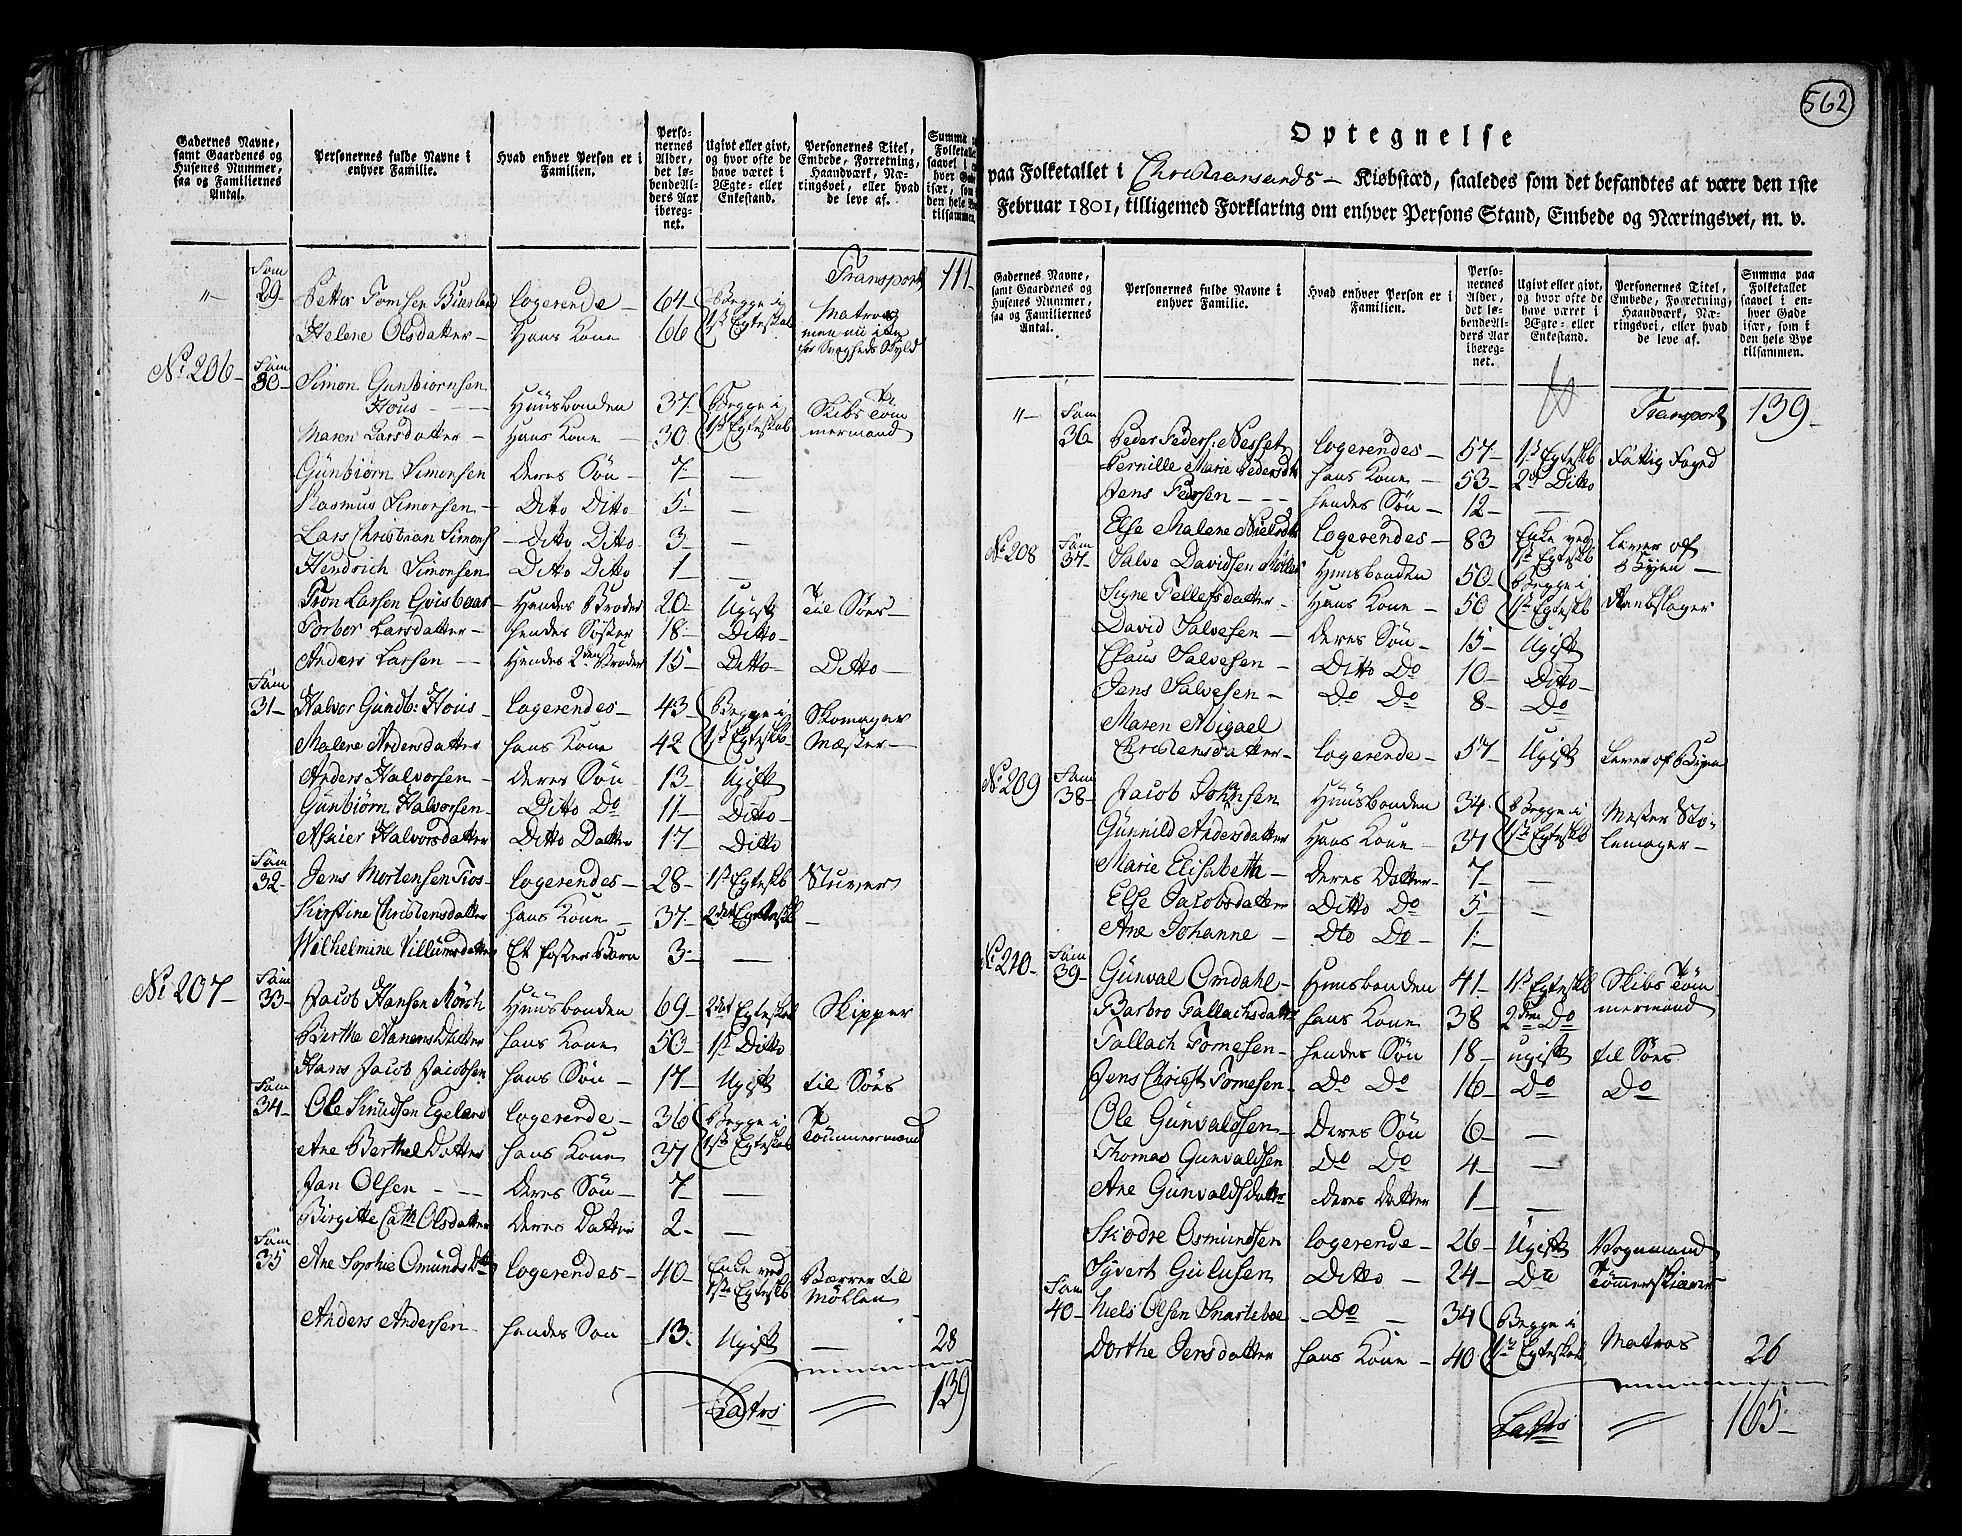 Gadernes Navne, samt Gaardenes og Husenes Nummer, saa og Familiernes Antal.
Personernes fulde Navne i enhver Familie.
Hvad enhver Person er i Familien.
Personernes Alder, det løbende Alders Aar iberegnet.
Ugivt eller givt, og hvor ofte de have været i Ægte- eller Enkestand.
Personernes Titel, Embede, Forretning, Haandværk, Næringsvei, eller hvad de leve af.
Transport 111
"- Fam 29- Petter Tomsen logerende - 64- Begge i Matros
Helene Olsdatter - Hans Kone 66 1ste Egteskab men nu for Svagheds Skyld
No 206- Fam 30- Simon Gunbiornsen
Hous - - - Huusbonden 37- Begge i Skibs Tøm
Maren Larsdatter - Hans Kone - 30 1ste Egteskab mermand
Günbiørn Simonsen Deres Søn - 7- —
Rasmus Simonsen - Ditto Ditto 5- —
Lars Christian Simons - Ditto Ditto 3- —
Hendrich Simonsen Ditto Ditto 1- —
Tron Larsen - Hendes Broder 20- Ugift Til Søes -
Torbor Larsdatter - hendes Søster 18- Ditto-
Anders Larsen - - Hendes 2den Broder 15 Ditto- Ditto -
Fam 31- Halvor Gundb: Hous - logerendes - 43- Begge i Skomager
Malene Andersdatter hans Kone 42 1ste Egteskb- Mester -
Anders Halvorsen - Deres Søn - 13- Ugift
Günbiørn Halvorsen - Ditto Do 11- Ditto-
Halvorsdatter Ditto Datter 17- Ditto
Fam 32- Jens Mortensen - logerendes - 28- 1ste Egteskb
Kirstine Christensdatter hans Kone - 37- 2det Egteskb -
Wilhelmine Villumsdatter Et foster Barn 3- —
No 207- Fam 33- Jacob Hansen Mørch Huusbonden 69- 2det Egteskab Skipper
Berthe Datter hans Kone 50- 1ste Ditto
Hans Jacob Jacobsen hans Søn - 17- Ugift til Søes
Fam 34- Ole Knudsen Egeland logerende - 36 Begge i Tømmermand
Ane Berthel Datter hans Kone 37 1ste Egteskab
Jan Olsen - - - Deres Søn - 7- —
Birgitte Cath Olsdatter Deres Datter 2- —
Fam 35 Ane Sophie Omunds Dtr logerendes - 40- Enke ved 1ste Egteskb Bærrer til Møllen
Anders Andersen - hendes Søn 13- Ugift — 28
Latus 139
562
Optegnelse
paa Folketallet i Christiansands - Kiøbstæd, saaledes som det befandtes at være den 1ste
Februar 1801, tilligemed Forklaring om enhver Persons Stand, Embede og Næringsvei, m. v.
Gadernes Navne, samt Gaardenes og Husenes Nummer, saa og Familiernes Antal.
Personernes fulde Navne i enhver Familie.
Hvad enhver Person er i Familien.
Personernes Alder, det løbende Alders Aar iberegnet.
Ugivt eller givt, og hvor ofte de have været i Ægte- eller Enkestand.
Personernes Titel, Embede, Forretning, Haandværk, Næringsvei, eller hvad de leve af.
Summa paa Folketallet saavel i enhver Gade især, som i den hele Bye tilsammen.
Transport 139-
"- Fam 36- Peder Peders: Nesset logerendes - 57- 1ste Egteskb Fattig Foged
Pernille Marie Pedersdtr hans Kone - 53- 2d Ditto
Jens - - - hendes Søn - 12- —
Else Malene Nielsdtr logerendes - 83 Enke ved 1ste Egteskb Lever af Byen -
No 208 Fam 37- Salve Davidsen Møller Huusbonden 50- Begge i
Signe Tellefsdatter - Hans Kone - 50 1ste Egteskb Reebslager
David Salvesen - Deres Søn - 15- Ugift
Claus Salvesen - Ditto Do 10- Ditto-
Jens Salvesen - Do Do 8- Do
Maren Abigael
Christensdatter - logerende - 57 Ugift Lever af Byen
No 209 Fam 38- Jacob Johnsen Huusbonden 34- Begge i Mester Sto-
Günnild Andersdatter Hans Kone - 37 1ste Egteskb lemager -
Marie Elisabeth - Deres Datter- 7- —
Else Jacobsdatter Ditto Do 5- —
Ane Johanne - Dto Do - 1-
No 210- Fam 39- Günval Omdahl - Huusbonden 41- 1ste Egteskb Skibs Tøm
Barbro Tallachsdatter hans Kone 38 2den Do mermand
Tallach Tomesen - hendes Søn 18- ugift til Søes
Jens Christ Tomesen - Do Do 16- Do Do
Ole Günvaldsen - Deres Søn 6- —
Thomas Gunvaldsen Do Do 4- —
Ane Günvalds Datter deres Datter 1- —
Osmundsen logerende - 26- Ugift Vognmand
Syvert Ditto - 24- Do Tømmerskiærer
Fam 40- Niels Olsen - Do - 34 Begge i Matros
Dorthe Jensdatter hans Kone - 40 1ste Egteskab 26
Latus 165-